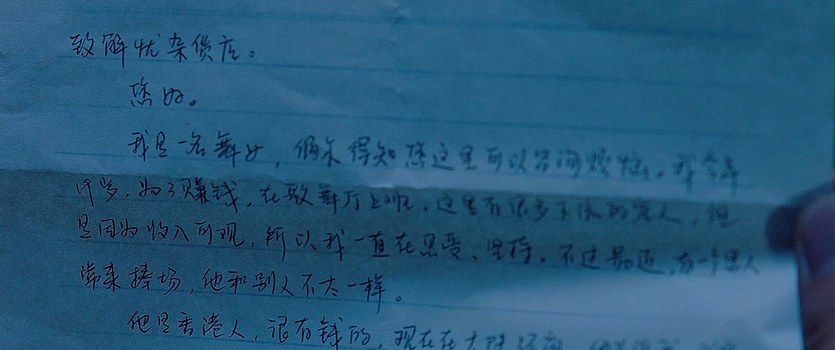 致解忧杂货店：
您好。
我是一名舞女，偶尔得知您这里可以咨询烦恼。我今年
19岁，为了赚钱，在歌舞厅上班。这里有很多下流的客人，但
是因为收入可观，所以我一直在忍受、坚持。不过最近，有一个男人
常来捧场，他和别人不太一样。
他是香港人，很有钱的，现在在大陆